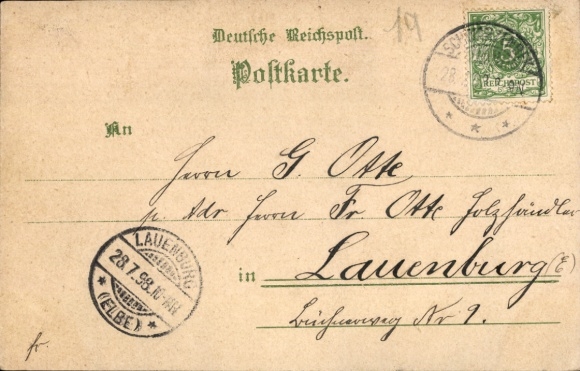 19
Deutsche Reichspost.
Postkarte.
5
REICHSPOST
28. 7. 9
An
Herrn G. Otte
p. Adr Herrn Fr Otte Holzhändler
in Lauenburg (E)
Büchnerweg Nr 9.
LAUENBURG
28.7.98.10-11V
* (ELBE) *
fr.